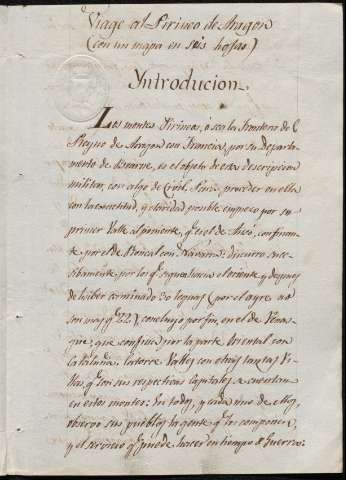 Viage al Pirineo de Aragon
(con un mapa en seis hojas.)
Yntroducion.
Los montes Pirineos, ó sea la frontera del
Reyno de Aragon con Francia, por su Departa-
mento de Bearne, es el objeto de esta descripcion
militar, con algo de Civil. Para proceder en ella
con la exactitud, y claridad posible empiezo por su
primer Valle al poniente, q.e es el de Ansó, confinan-
te por el de Roncal con Navarra: discurro suce-
sibamente por los q.e siguen hacia el oriente, y despues
de haber caminado 30 leguas (por el ayre no
son mas q.e 22), concluyo por fin, en el de Venas-
que; que confina por la parte oriental con
Cataluña. Catorce Valles con otras tantas Vi-
llas, q.e son sus respectivas capitales se cuentan
en estos montes: En todos, y cada uno de ellos,
observo sus pueblos la gente q.e los componen,
y el servicio q.e puede hacer en tiempo de Guerra: